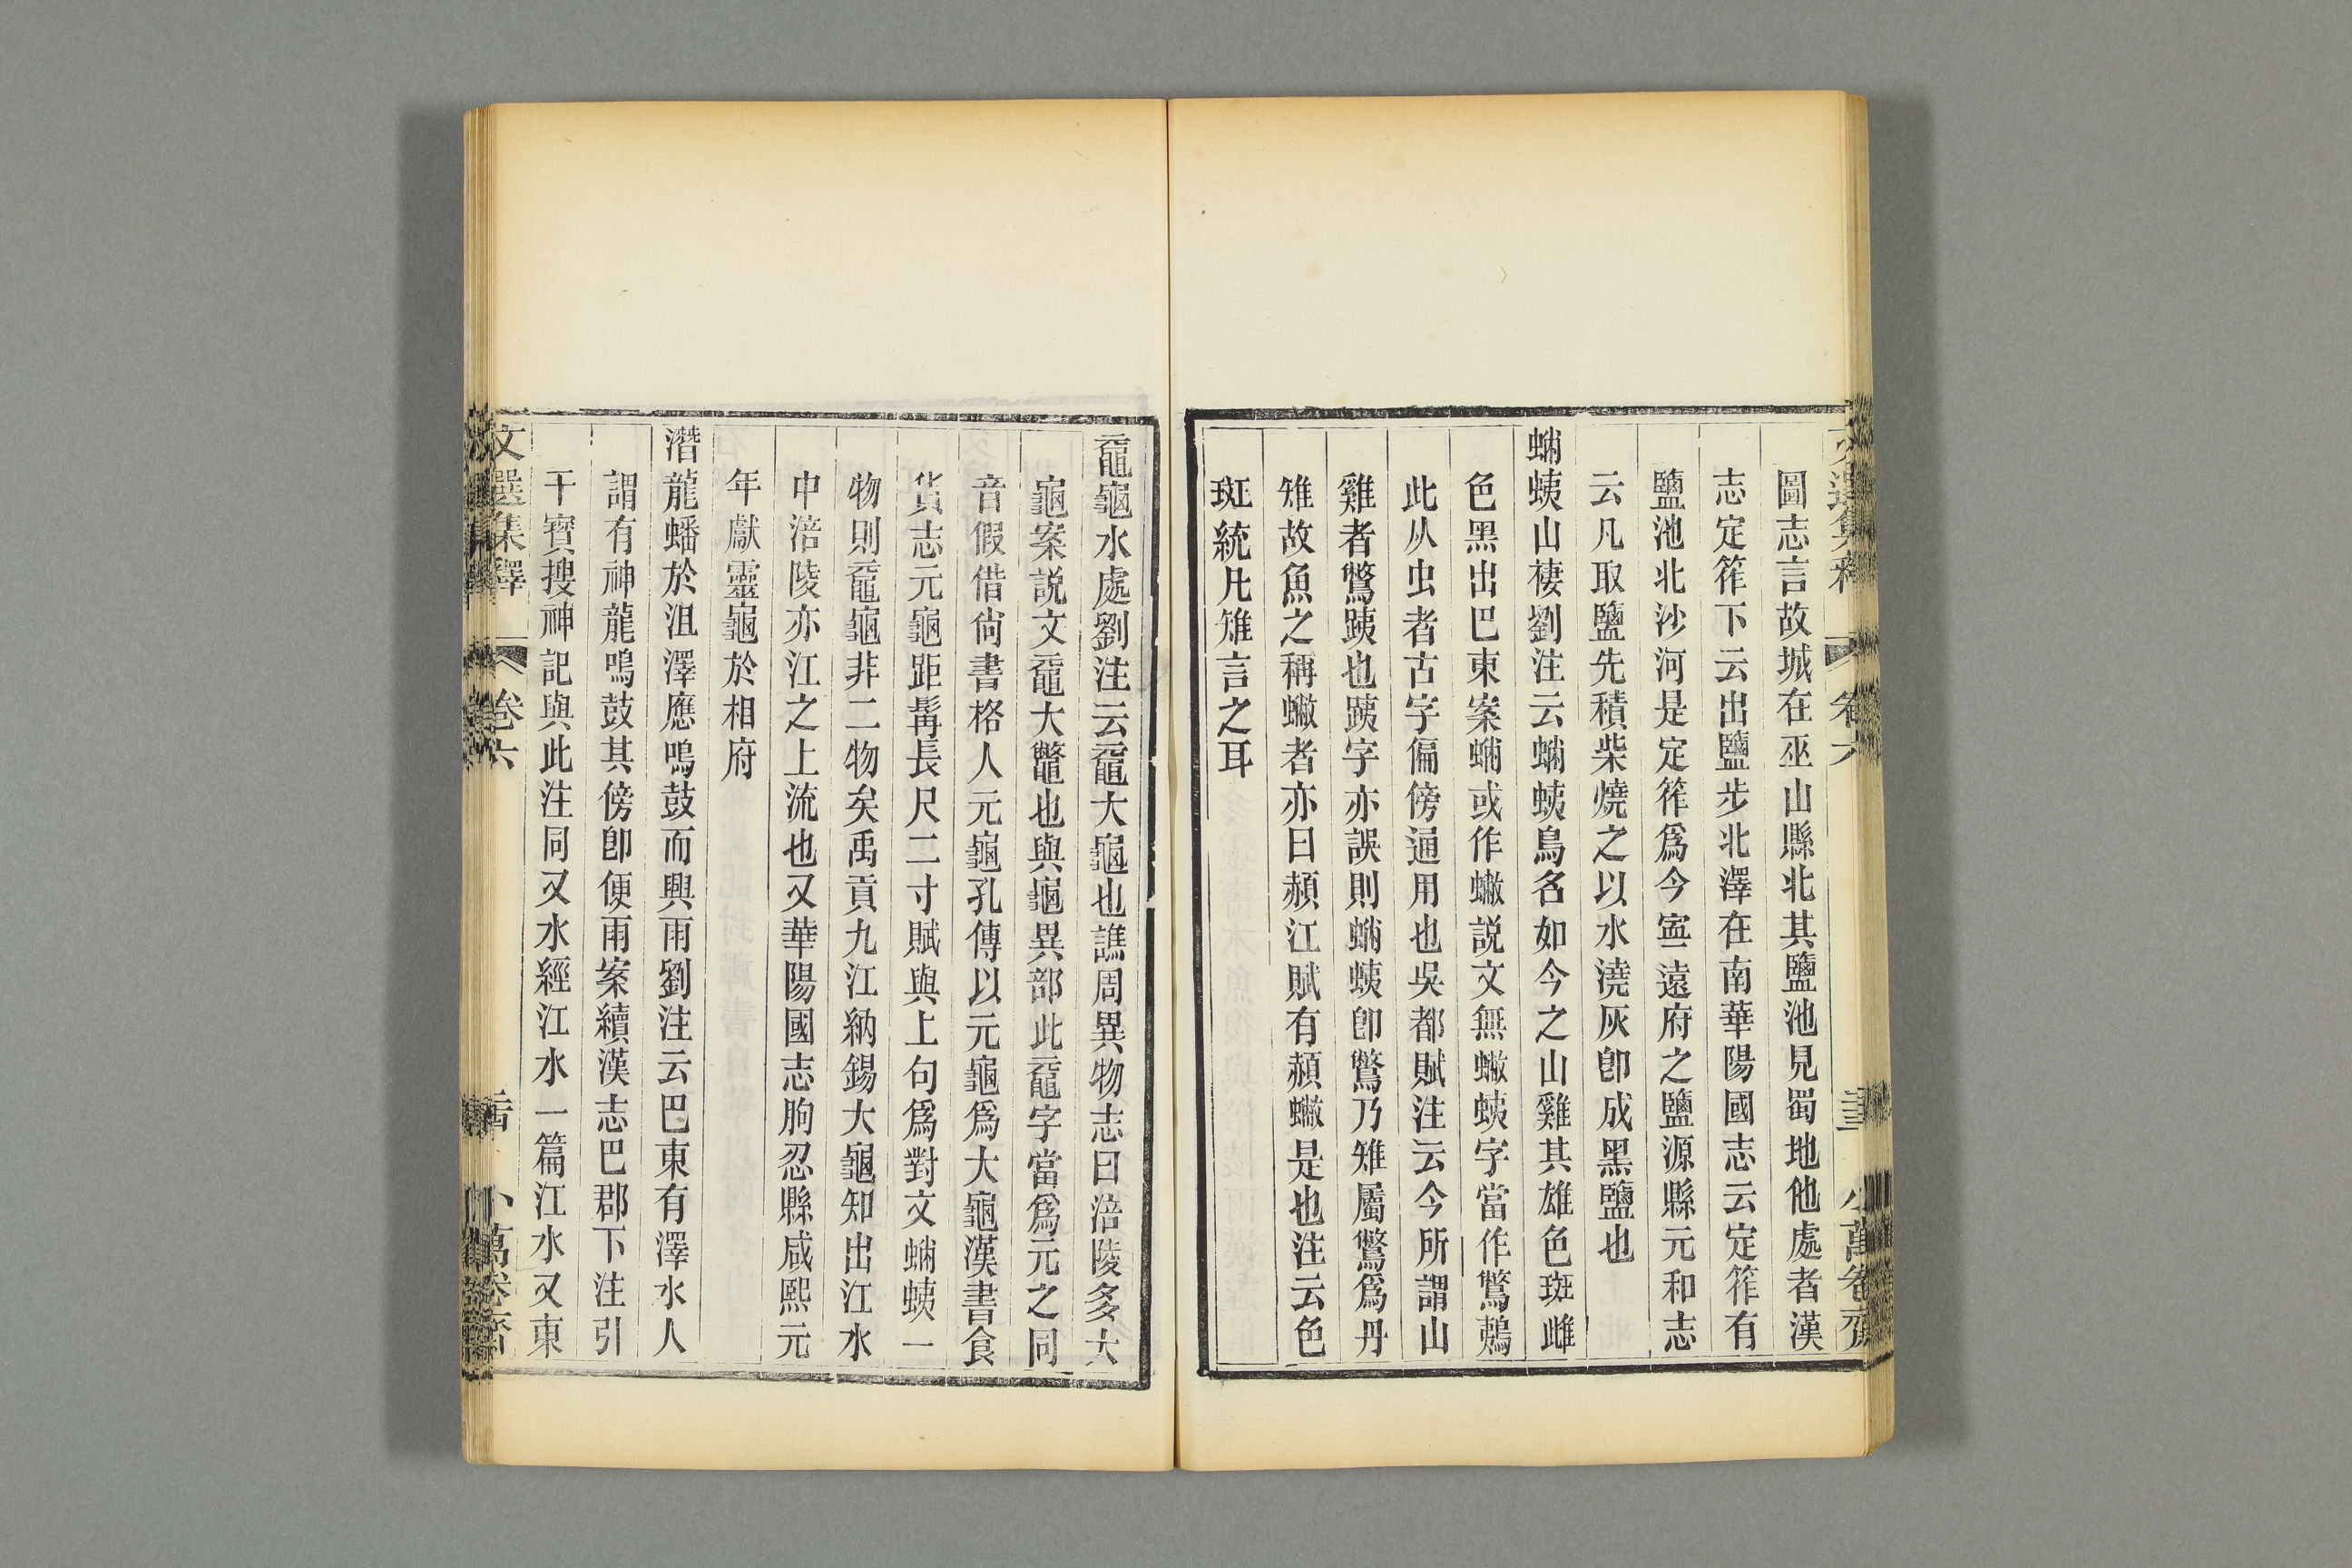 文選集釋 卷六 三三 小萬卷齋
圖志言故城在巫山縣北其鹽池見蜀地他處者漢
志定筰下云出鹽步北澤在南華陽國志云定筰有
鹽池北沙河是定筰爲今寍遠府之鹽源縣元和志
云凡取鹽先積柴燒之以水澆灰卽成黑鹽也
蟎蛦山棲劉注云蟎蛦鳥名如今之山雞其雄色斑雌
色黑出巴東案蟎或作蠍說文無蠍蛦字當作鷩鴺
此从虫者古字偏傍通用也吳都賦注云今所謂山
雞者鷩䴊也䴊字亦誤則蟎蛦卽鷩乃雉屬鷩爲丹
雉故魚之稱蟞者亦曰赬江賦有赬蟞是也注云色
斑統凡雉言之耳
黿龜水處劉注云黿大龜也譙周異物志曰涪陵多大
龜案說文黿大鼈也與龜異部此黿字當爲元之同
音假借尙書格人元龜孔傳以元龜爲大龜漢書食
貨志元龜距髯長尺二寸賦與上句爲對文蟎蛦一
物則黿龜非二物矣禹貢九江納錫大龜知出江水
中涪陵亦江之上流也又華陽國志朐忍縣咸熙元
年獻靈龜於相府
潛龍蟠於沮澤應鳴鼓而興雨劉注云巴東有澤水人
謂有神龍鳴鼓其傍卽便雨案續漢志巴郡下注引
干寶搜神記與此注同又水經江水一篇江水又東
文選集釋 卷六 小萬卷齋